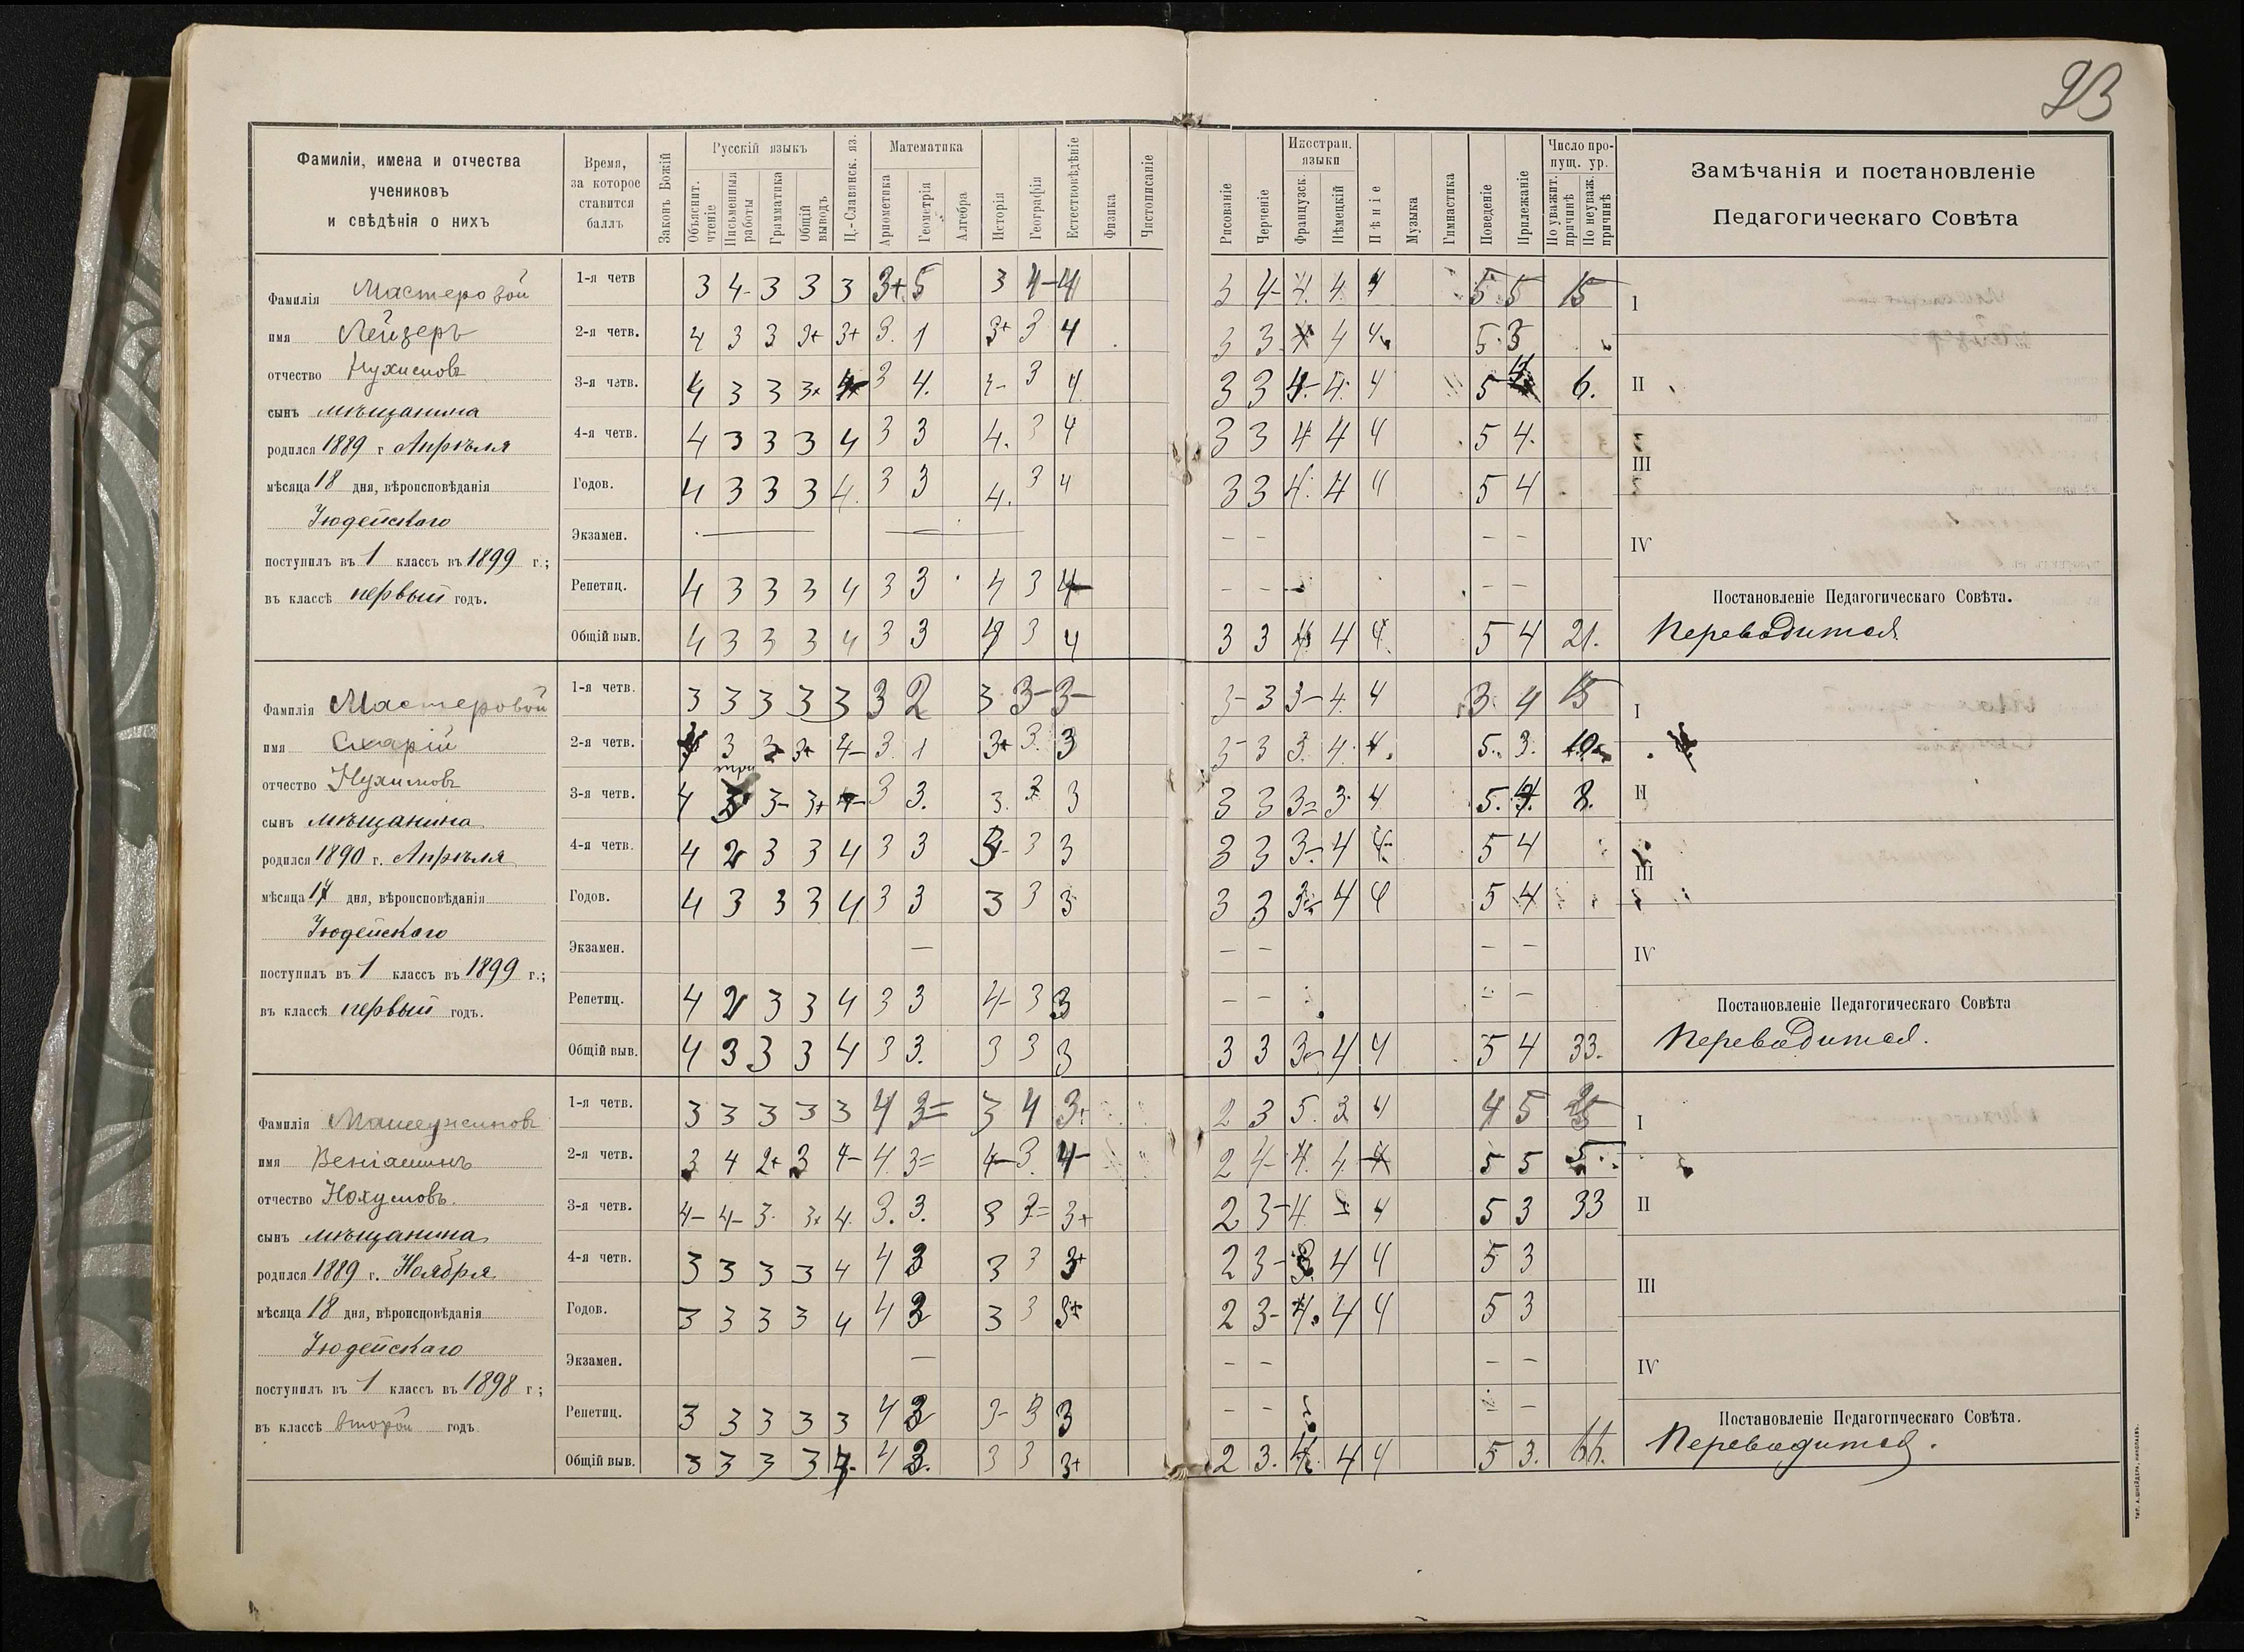 23
Фамиліи, имена и отчества
учениковъ
и свѣдѣнія о нихъ
Время,
за которое
ставится
баллъ
Законъ Божій
Русскій языкъ
Объяснит. чтеніе
Письменныя работы
Грамматика
Общій выводъ
Ц.-Славянск. яз.
Математика
Ариѳметика
Геометрія
Алгебра
Исторія
Географія
Естествовѣдѣніе
Физика
Чистописаніе
Рисованіе
Черченіе
Иностран. языки
Французск.
Нѣмецкій
Пѣніе
Музыка
Гимнастика
Поведеніе
Прилежаніе
Число пропущ. ур.
По уважит. причинѣ
По неуваж. причинѣ
Замѣчанія и постановленіе
Педагогическаго Совѣта
Фамилія Мастеровой
имя Лейзеръ
отчество Нухимовъ
сынъ мѣщанина
родился 1889 г Апрѣля
мѣсяца 18 дня, вѣроисповѣданія
Іюдейскаго
поступилъ въ 1 классъ въ 1899 г.;
въ классѣ первый годъ.
1-я четв 3 4- 3 3 3 3+ 5 3 4- 4 3 4- 4. 4. 4 5 5 15
2-я четв. 4 3 3 3+ 3+ 3. 1 3+ 3 4 3 3 4 4 4 5. 3
3-я четв. 4 3 3 3+ 3 4. 3 4 3 3 4- 4. 4 5 4 6.
4-я четв. 4 3 3 3 4 3 3 4. 3 4 3 3 4 4 4 5 4.
Годов. 4 3 3 3 4. 3 3 4. 3 4 3 3 4. 4 4 5 4
Экзамен. — — – – – –
Репетиц. 4 3 3 3 4 3 3 4 3 4 – – – – –
Общій выв. 4 3 3 3 4 3 3 4 3 4 3 3 4 4 4 5 4 21.
I
II
III
IV
Постановленіе Педагогическаго Совѣта.
Переводится
Фамилія Мастеровой
имя Смарій
отчество Нухимовъ
сынъ мѣщанина
родился 1890 г. Апрѣля
мѣсяца 17 дня, вѣроисповѣданія
Іюдейскаго
поступилъ въ 1 классъ въ 1899 г.;
въ классѣ первый годъ.
1-я четв. 3 3 3 3 3 3 2 3 3- 3- 3- 3 3- 4. 4 3. 4 15
2-я четв. 3 3+ 4- 3. 1 3+ 3. 3 3- 3 3. 4. 4. 5. 3. 10
три
3-я четв. 4 3 3- 3+ 4- 3 3. 3. 3 3 3 3 3= 3. 4 5. 4. 8.
4-я четв. 4 2 3 3 4 3 3 3- 3 3 3 3 3- 4 4- 5 4
Годов. 4 3 3 3 4 3 3 3 3 3 3 3 3- 4 4 5 4
Экзамен. — – – – –
Репетиц. 4 2 3 3 4 3 3 4- 3 3 – – – –
Общій выв. 4 3 3 3 4 3 3. 3 3 3 3 3 3- 4 4 5 4 33.
I
II
III
IV
Постановленіе Педагогическаго Совѣта
Переводится.
Фамилія
имя Веніаминъ
отчество Нохумовъ.
сынъ мѣщанина
родился 1889 г. Ноября
мѣсяца 18 дня, вѣроисповѣданія
Іюдейскаго
поступилъ въ 1 классъ въ 1898 г;
въ классѣ второй годъ
1-я четв. 3 3 3 3 3 4 3= 3 4 3+ 2 3 5. 3 4 4 5
2-я четв. 3 4 2+ 3 4- 4. 3= 4- 3. 4- 2 4- 4. 4. 4 5 5 5.
3-я четв. 4- 4- 3. 3+ 4. 3. 3. 3 3= 3+ 2 3- 4. 4 5 3 33
4-я четв. 3 3 3 3 4 4 3 3 3 3+ 2 3- 3. 4 4 5 3
Годов. 3 3 3 3 4 4 3 3 3 3+ 2 3- 4. 4 4 5 3
Экзамен. — – – – –
Репетиц. 3 3 3 3 3 4 3 3- 3 3 – – – –
Общій выв. 3 3 3 3 4- 4 3. 3 3 3+ 2 3. 4. 4 4 5 3. 66.
I
II
III
IV
Постановленіе Педагогическаго Совѣта.
Переводится.
ТИП. А. ШНЕЙДЕРА, НИКОЛАЕВЪ.